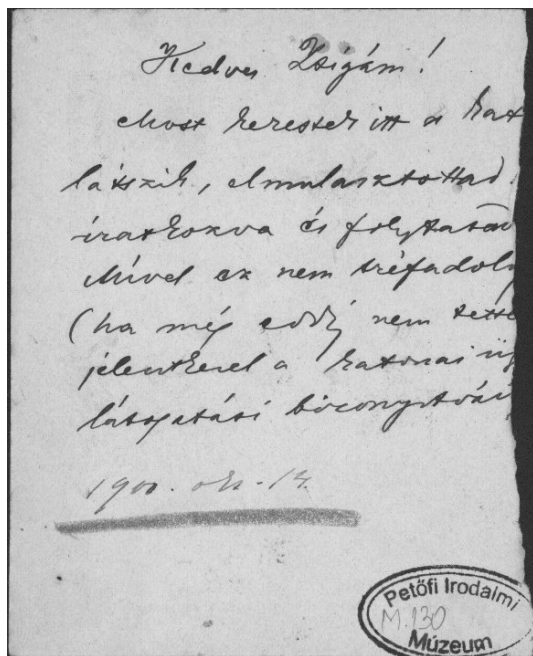 Kedves Zsigám!
Most keresek itt a kat
látszik, elmulasztottad
iratkozva és folytatód
Mivel ez nem tréfadolg
(ha még eddig nem tetté
jelentkezel a katonai üg
látogatási bizonyitván
1900. okt. 14.
Petőfi Irodalmi
M.130
Múzeum